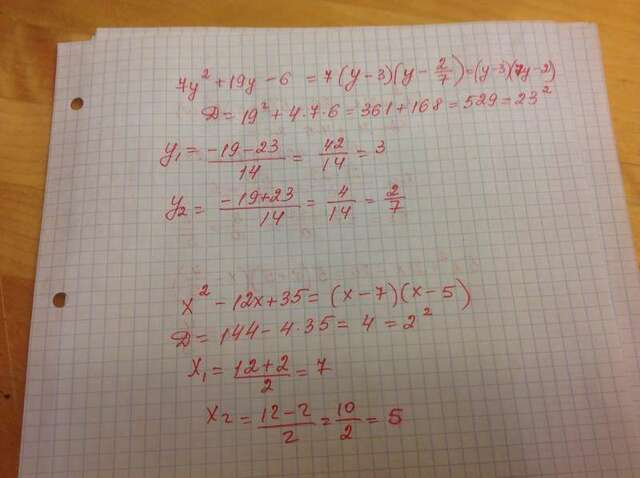 7y² + 19y - 6 = 7(y-3)(y - 2/7) = (y-3)(7y-2)
D = 19² + 4·7·6 = 361 + 168 = 529 = 23²
y₁ = (-19-23)/14 = 42/14 = 3
y₂ = (-19+23)/14 = 4/14 = 2/7
x² - 12x + 35 = (x-7)(x-5)
D = 144 - 4·35 = 4 = 2²
x₁ = (12+2)/2 = 7
x₂ = (12-2)/2 = 10/2 = 5